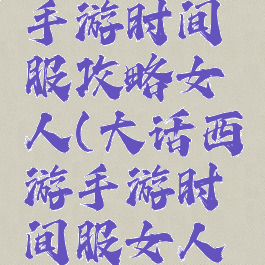 手游时间
服攻略女
人(大话西
游手游时
间服女人